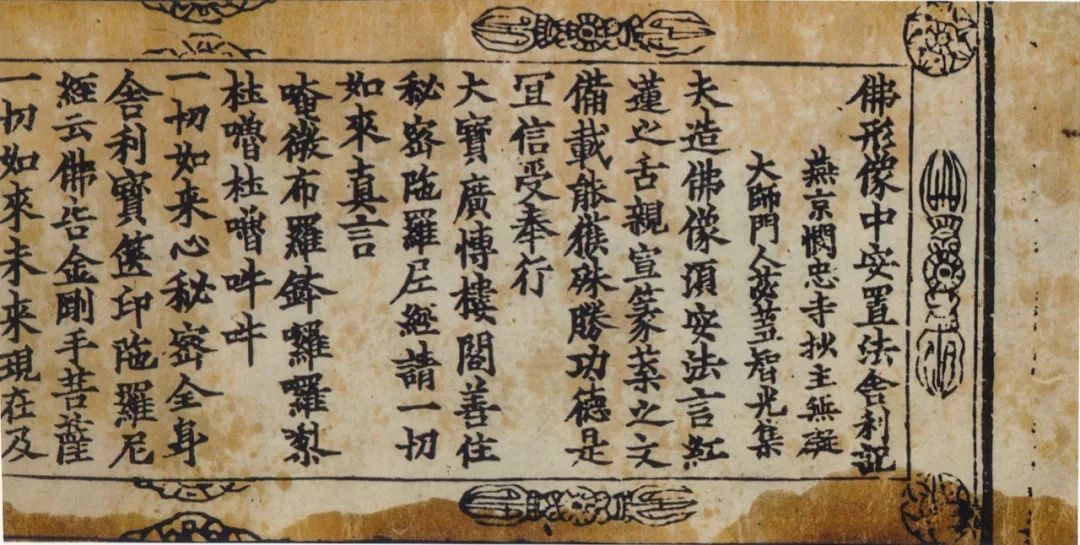 佛形像中安置法舍利記
燕京憫忠寺抄主無礙
大師門人苾蒭智光集
夫造佛像須安法言紅
蓮之舌親宣篆葉之文
備載能獲殊勝功德是
冝信受奉行
大寶廣愽樓閣善住
秘密陁羅尼經請一切
如來真言
唵薇布羅鉢囉囉
杜嚕杜嚕吽吽
一切如来心秘密全身
舎利寶篋印陁羅尼
經云佛告金剛手菩薩
一切如來未來現在及